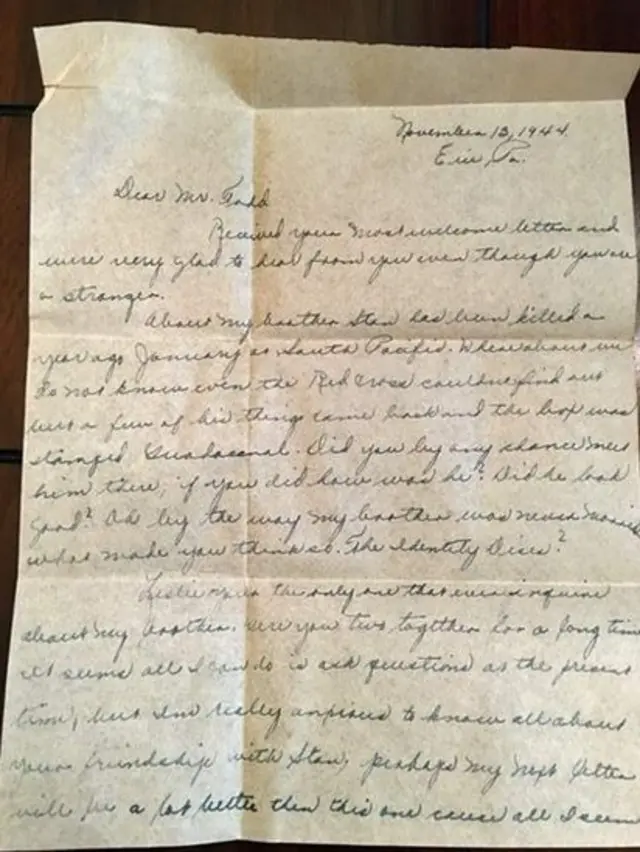 November 13, 1944
Erie, Pa.
Dear Mr. Todd
Received your most welcome letter and
were very glad to hear from you even though you are
a stranger.
About my brother Stan has been killed a
year ago January at South Pacific. Where about we
do not know even the Red Cross couldnt find out
but a few of his things came back and the box was
stamped Guadacanal. Did you by any chance meet
him there, if you did how was he? Did he look
good? Oh by the way my brother was never
what made you think so. The Identity Discs?
Leslie the only one that ever inquire
about my brother. Were you two together for a long time
It seems all I can do is ask questions at the present
time, but Im really anxious to know all about
your friendship with Stan, perhaps my next letter
will be a lot better then this one cause all I seem